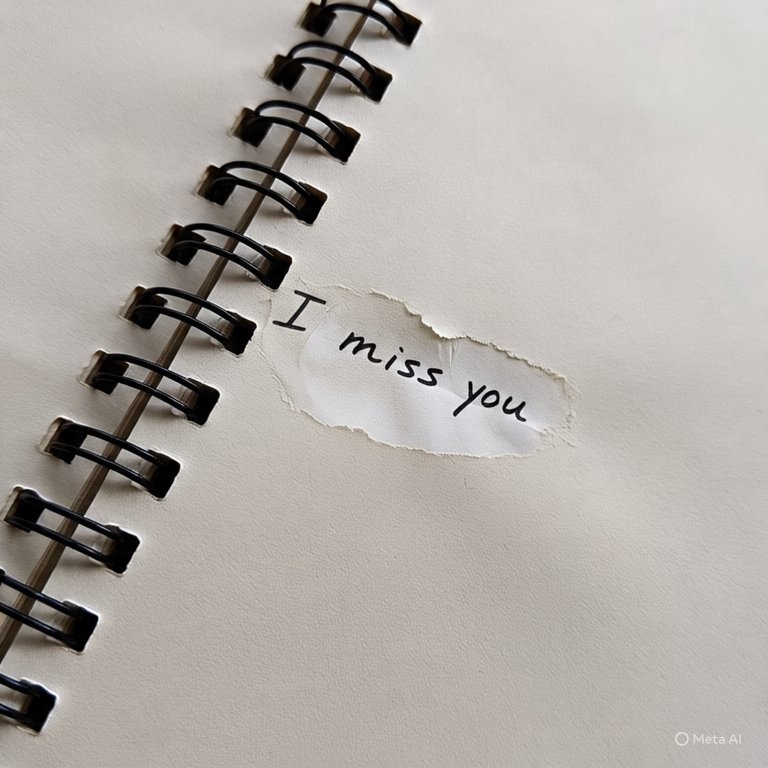 I miss you
Meta AI